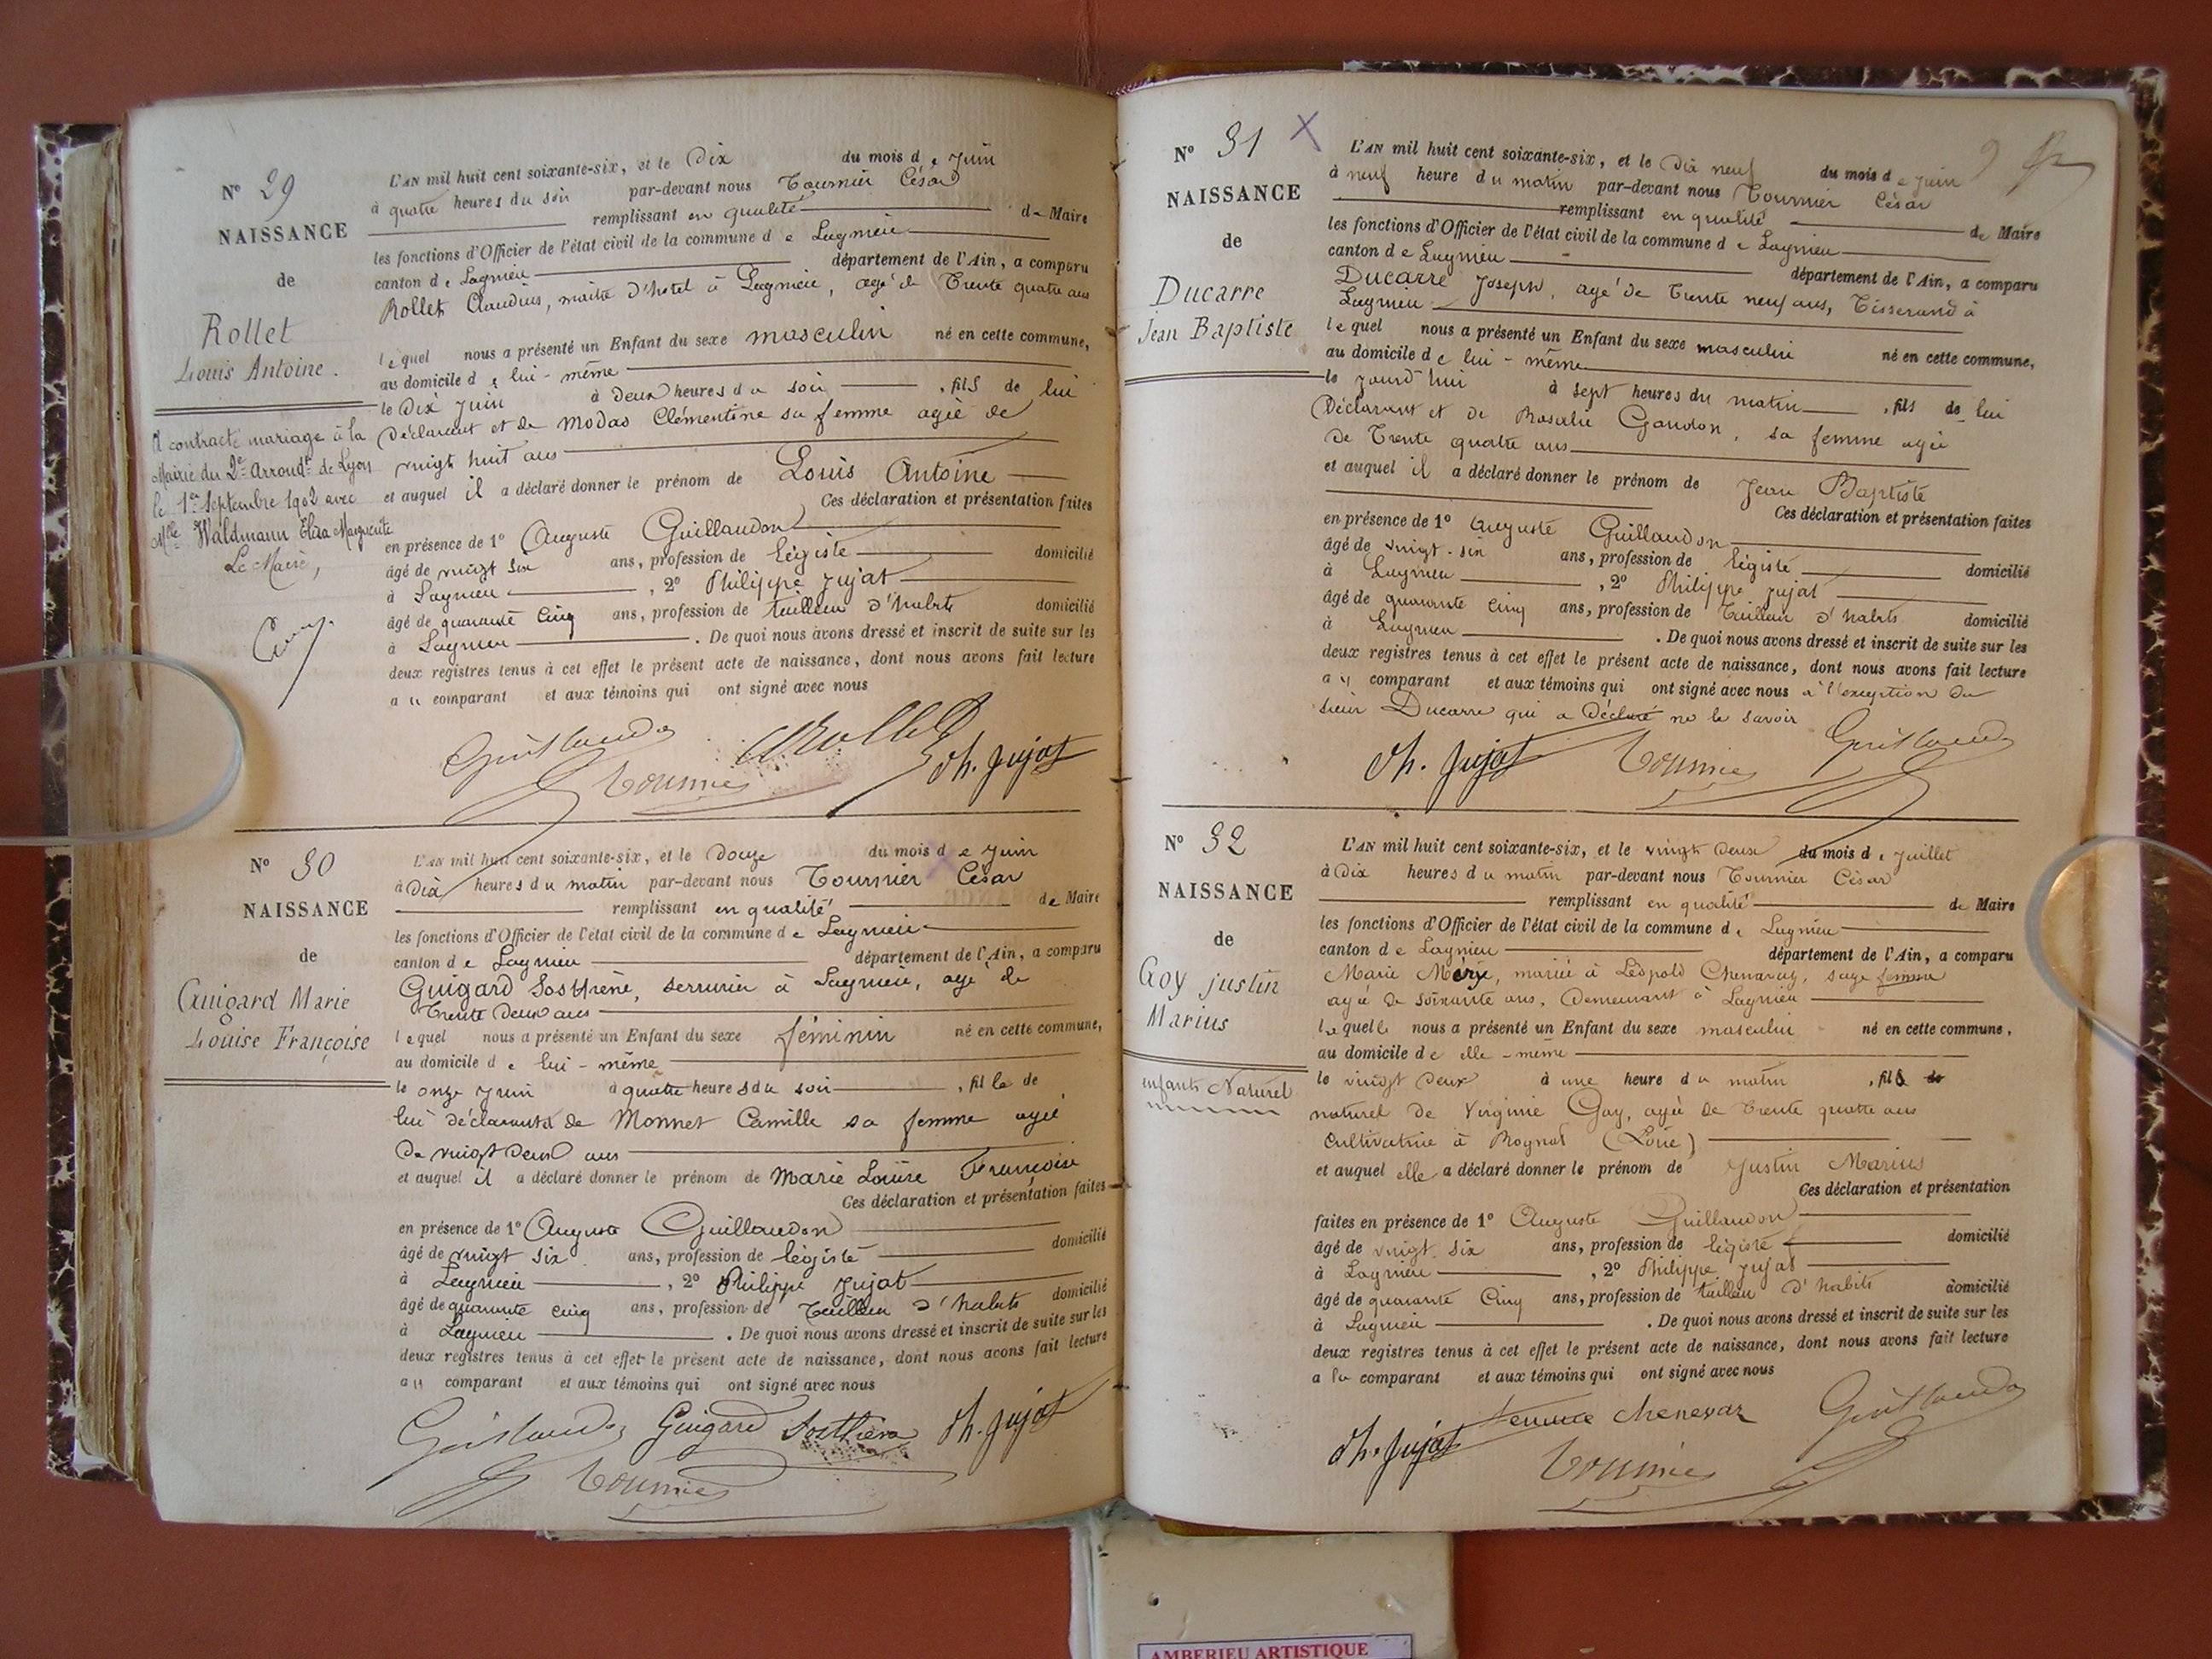 N° 29
NAISSANCE
de
Rollet
Louis Antoine.
A contracté mariage à la
Mairie du 2e Arrondt de Lyon
le 1er Septembre 1902 avec
Mlle Waldmann Elisa Marguerite
Le Maire,
L'AN mil huit cent soixante-six, et le Dix du mois de Juin
à quatre heures du soir par-devant nous Tournier César
remplissant en qualité de Maire
les fonctions d'Officier de l'état civil de la commune de Lagnieu
canton de Lagnieu département de l'Ain, a comparu
Rollet Claudius, maitre d'hotel à Lagnieu, agé de Trente quatre ans
lequel nous a présenté un Enfant du sexe masculin né en cette commune,
au domicile de lui-même
le Dix Juin à Deux heures du soir, fils de lui
Déclarant et de Modas Clémentine sa femme agée de
vingt huit ans
et auquel il a déclaré donner le prénom de Louis Antoine
Ces déclaration et présentation faites
en présence de 1° Auguste Guillaudon
âgé de vingt six ans, profession de légiste domicilié
à Lagnieu, 2° Philippe Jujat
âgé de quarante cinq ans, profession de tailleur d'habits domicilié
à Lagnieu. De quoi nous avons dressé et inscrit de suite sur les
deux registres tenus à cet effet le présent acte de naissance, dont nous avons fait lecture
au comparant et aux témoins qui ont signé avec nous
Guillaudon CRollet
Tournier Ph. Jujat
N° 30
NAISSANCE
de
Guigard Marie
Louise Françoise
L'AN mil huit cent soixante-six, et le Douze du mois de Juin
à Dix heures du matin par-devant nous Tournier César
remplissant en qualité de Maire
les fonctions d'Officier de l'état civil de la commune de Lagnieu
canton de Lagnieu département de l'Ain, a comparu
Guigard Sosthène, serrurier à Lagnieu, agé de
Trente Deux ans
lequel nous a présenté un Enfant du sexe féminin né en cette commune,
au domicile de lui-même
le onze Juin à quatre heures du soir, fille de
lui déclarant & de Monnet Camille sa femme agée
De vingt Deux ans
et auquel il a déclaré donner le prénom de Marie Louise Françoise
Ces déclaration et présentation faites
en présence de 1° Auguste Guillaudon
âgé de vingt six ans, profession de légiste domicilié
à Lagnieu, 2° Philippe Jujat
âgé de quarante cinq ans, profession de Tailleur d'habits domicilié
à Lagnieu. De quoi nous avons dressé et inscrit de suite sur les
deux registres tenus à cet effet le présent acte de naissance, dont nous avons fait lecture
au comparant et aux témoins qui ont signé avec nous
Guillaudon Guigard Sosthène Ph. Jujat
Tournier
N° 31 X
NAISSANCE
de
Ducarre
Jean Baptiste
L'AN mil huit cent soixante-six, et le Dix neuf du mois de Juin
à neuf heure du matin par-devant nous Tournier César
remplissant en qualité de Maire
les fonctions d'Officier de l'état civil de la commune de Lagnieu
canton de Lagnieu département de l'Ain, a comparu
Ducarre Joseph, agé de Trente neuf ans, Tisserand à
Lagnieu
lequel nous a présenté un Enfant du sexe masculin né en cette commune,
au domicile de lui-même
le jourd'hui à sept heures du matin, fils de lui
Déclarant et de Rosalie Gandon, sa femme agée
de Trente quatre ans
et auquel il a déclaré donner le prénom de Jean Baptiste
Ces déclaration et présentation faites
en présence de 1° Auguste Guillaudon
âgé de vingt-six ans, profession de légiste domicilié
à Lagnieu, 2° Philippe Jujat
âgé de quarante cinq ans, profession de Tailleur d'habits domicilié
à Lagnieu. De quoi nous avons dressé et inscrit de suite sur les
deux registres tenus à cet effet le présent acte de naissance, dont nous avons fait lecture
au comparant et aux témoins qui ont signé avec nous à l'exception du
sieur Ducarre qui a Déclaré ne le savoir
Ph. Jujat Tournier Guillaudon
N° 32
NAISSANCE
de
Goy justin
Marius
enfants Naturel
L'AN mil huit cent soixante-six, et le vingt Deux du mois de Juillet
à Dix heures du matin par-devant nous Tournier César
remplissant en qualité de Maire
les fonctions d'Officier de l'état civil de la commune de Lagnieu
canton de Lagnieu département de l'Ain, a comparu
Marie, mariée à Léopold Chenavaz, sage femme
agée de soixante ans, Demeurant à Lagnieu
laquelle nous a présenté un Enfant du sexe masculin né en cette commune,
au domicile de elle-même
le vingt Deux à une heure du matin, fils de
naturel de Virginie Goy, agée de Trente quatre ans
cultivatrice à Rognat (Loire)
et auquel elle a déclaré donner le prénom de Justin Marius
Ces déclaration et présentation
faites en présence de 1° Auguste Guillaudon
âgé de vingt six ans, profession de légiste domicilié
à Lagnieu, 2° Philippe Jujat
âgé de quarante cinq ans, profession de tailleur d'habits domicilié
à Lagnieu. De quoi nous avons dressé et inscrit de suite sur les
deux registres tenus à cet effet le présent acte de naissance, dont nous avons fait lecture
a la comparant et aux témoins qui ont signé avec nous
Ph. Jujat femme chenevaz Guillaudon
Tournier
AMBERIEU ARTISTIQUE